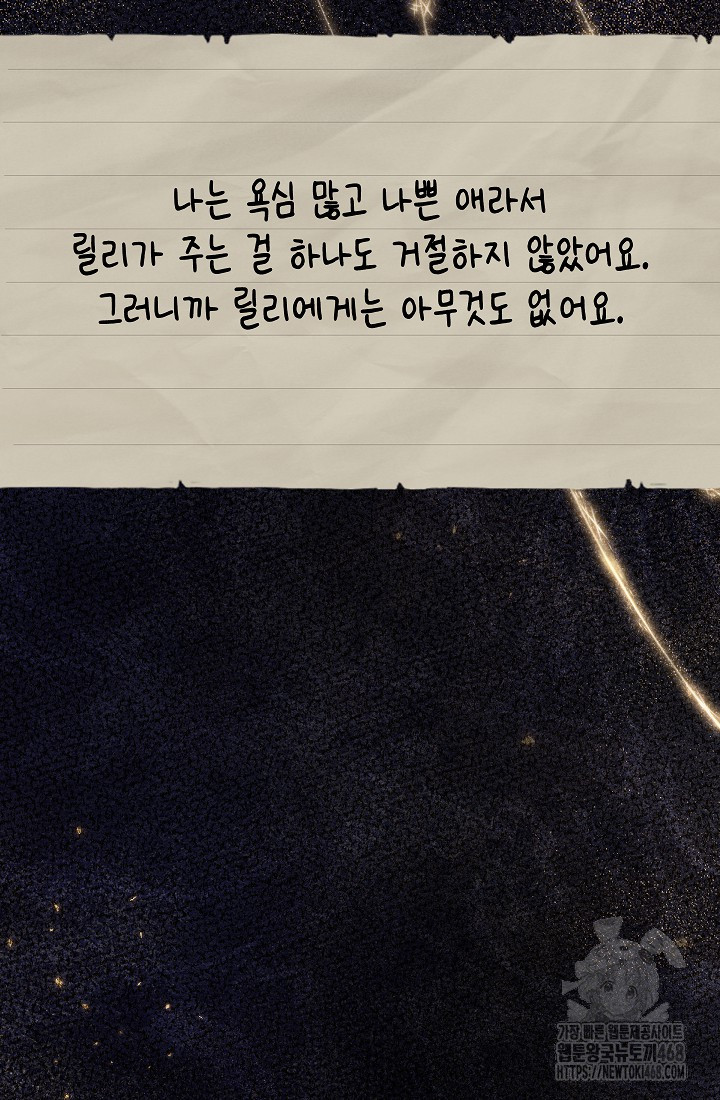 나는 욕심 많고 나쁜 애라서
릴리가 주는 걸 하나도 거절하지 않았어요.
그러니까 릴리에게는 아무것도 없어요.
가장 빠른 웹툰제공사이트
웹툰왕국뉴토끼468
HTTPS://NEWTOKI468.COM